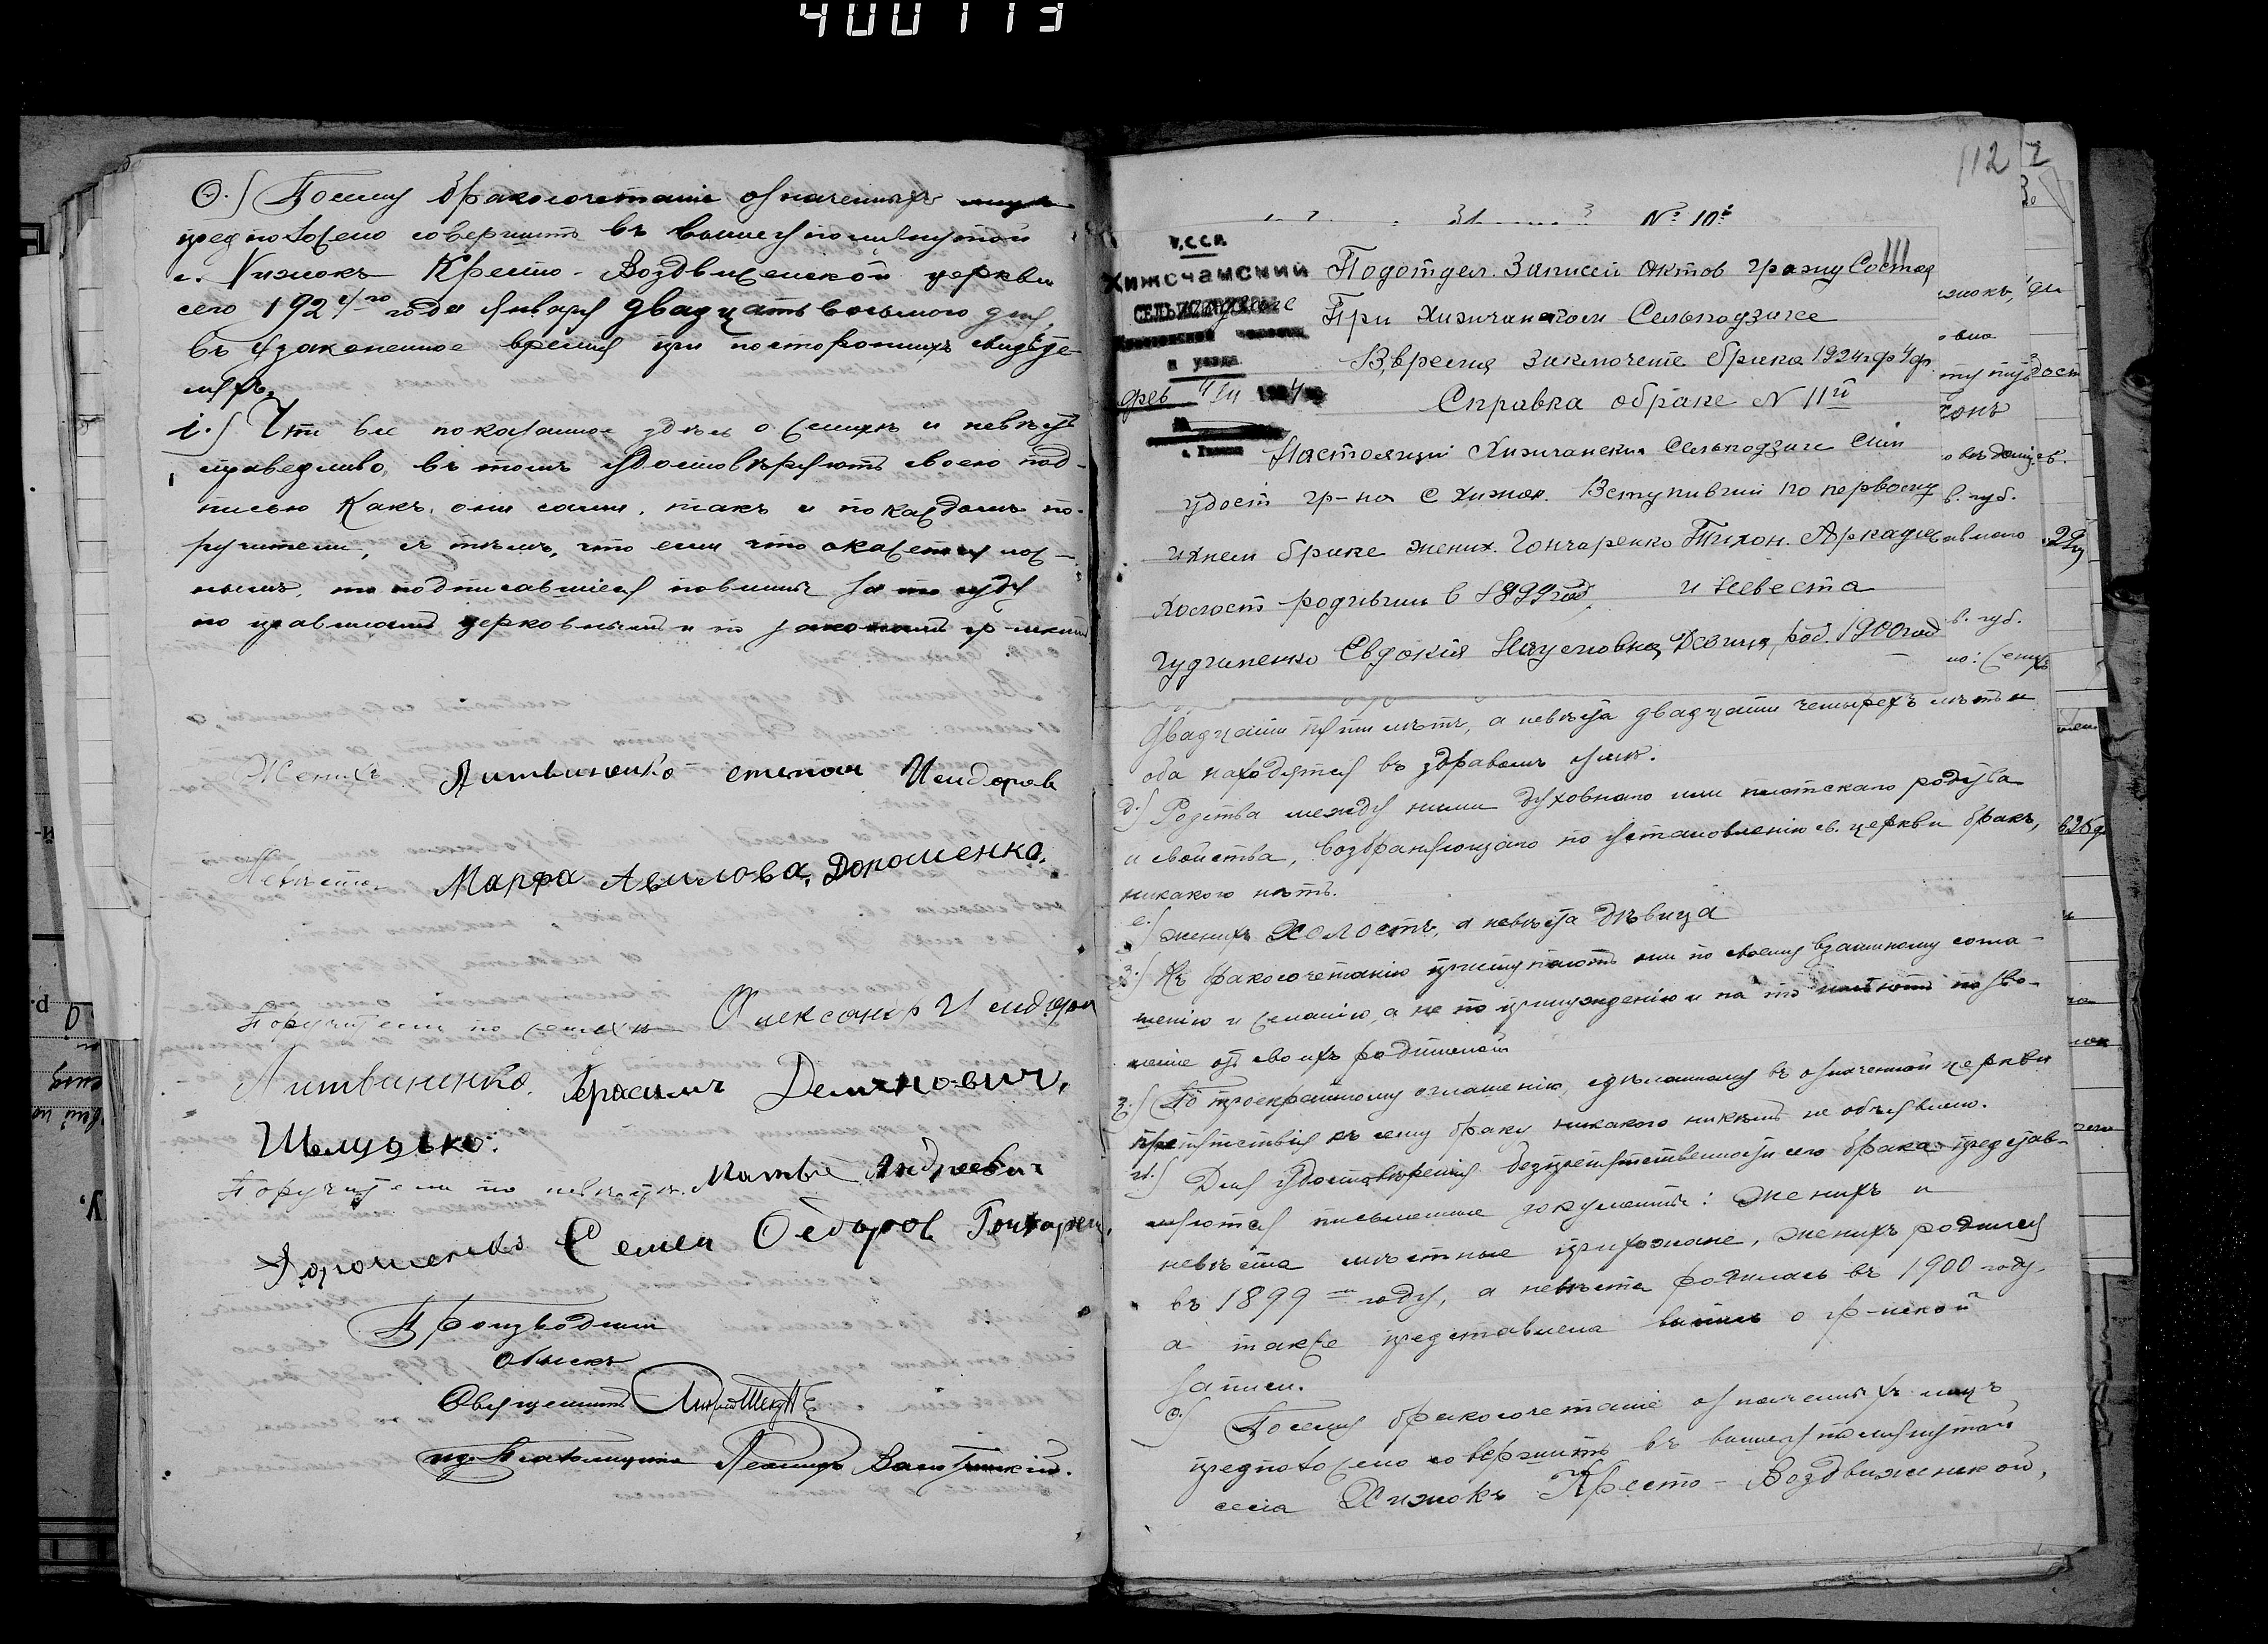 400113
Ѳ.) По сему бракосочетаніе означенныхъ
предположено совершить въ вышеупомянутой
с. Хижокъ Кресто-Воздвиженской церкви
сего 1924го года января двадцать восьмого дня,
въ узаконенное время при постороннихъ свидѣте-
ляхъ.
і.) Что все показанное здѣсь о женихѣ и невѣстѣ
справедливо, въ томъ удостовѣряютъ своею под-
писью какъ они сами, такъ и по каждомъ по-
ручители, съ тѣмъ, что если что окажется лож-
нымъ, то подписавшіеся повинны за то суду
по правиламъ церковнымъ и по законамъ гр-скимъ
Женихъ Литвиненко степан Исидоров
Невѣста Марфа Авилова, Дорошенко.
Поручители по женихѣ Олександр Исидоров
Литвиненко. Герасимъ Демяновичъ,
Шелудько.
Поручители по невѣстѣ. Матвѣй Андреевич
Дорошенко Семен Федоров Гончаренк
Производили
обыскъ
Священникъ
Псаломщикъ Леонидъ
112
№ 10й
111
У.С.С.Р.
Хижочамский
и уезда
фев 4/II 1924
Подотдел. Записей Актов гражд Состоя
При Хижчанском Сельподзиле
В,время Заключение брака 1924 г ф 4 дн.
Справка обраке N 11й
Настоящий Хижчанский Сельподзиле Сим
удост гр-на С Хижок. Вступивший По первому
ихнем браке жених. Гончаренко Тихон. Аркадиев
холост родивши в 1899 год. и Невеста
Евдокия Наумовна, Девица, род. 1900 год
двадцати пяти лѣтъ, а невѣста двадцати четырехъ лѣтъ и
оба находятся въ здравомъ умѣ.
д.) Родства между ними духовнаго или плотскаго родства
и свойства, возбраняющаго по установленію св. церкви бракъ,
никакого нѣтъ.
е.) Женихъ Холостъ, а невѣста дѣвица
з.) Къ бракосочетанію приступаютъ они по своему взаимному согла-
шенію и желанію, а не по принужденію и на то имѣютъ позво-
леніе отъ своихъ родителей
з.) По троекратному оглашенію, сдѣланному въ означенной церкви
препятствія къ сему браку никакого никѣмъ не объявлено.
и.) Для удостовѣренія безпрепятственности сего брака представ-
ляются письменные документы: Женихъ и
невѣста мѣстные прихожане, женихъ родился
въ 1899 м году, а невѣста родилась въ 1900 году,
а также представлена о гр-нской
записи.
Ѳ.) По сему бракосочетаніе означенныхъ лицъ
предположено совершить въ вышеупомянутой
села Хижокъ Кресто-Воздвиженской,